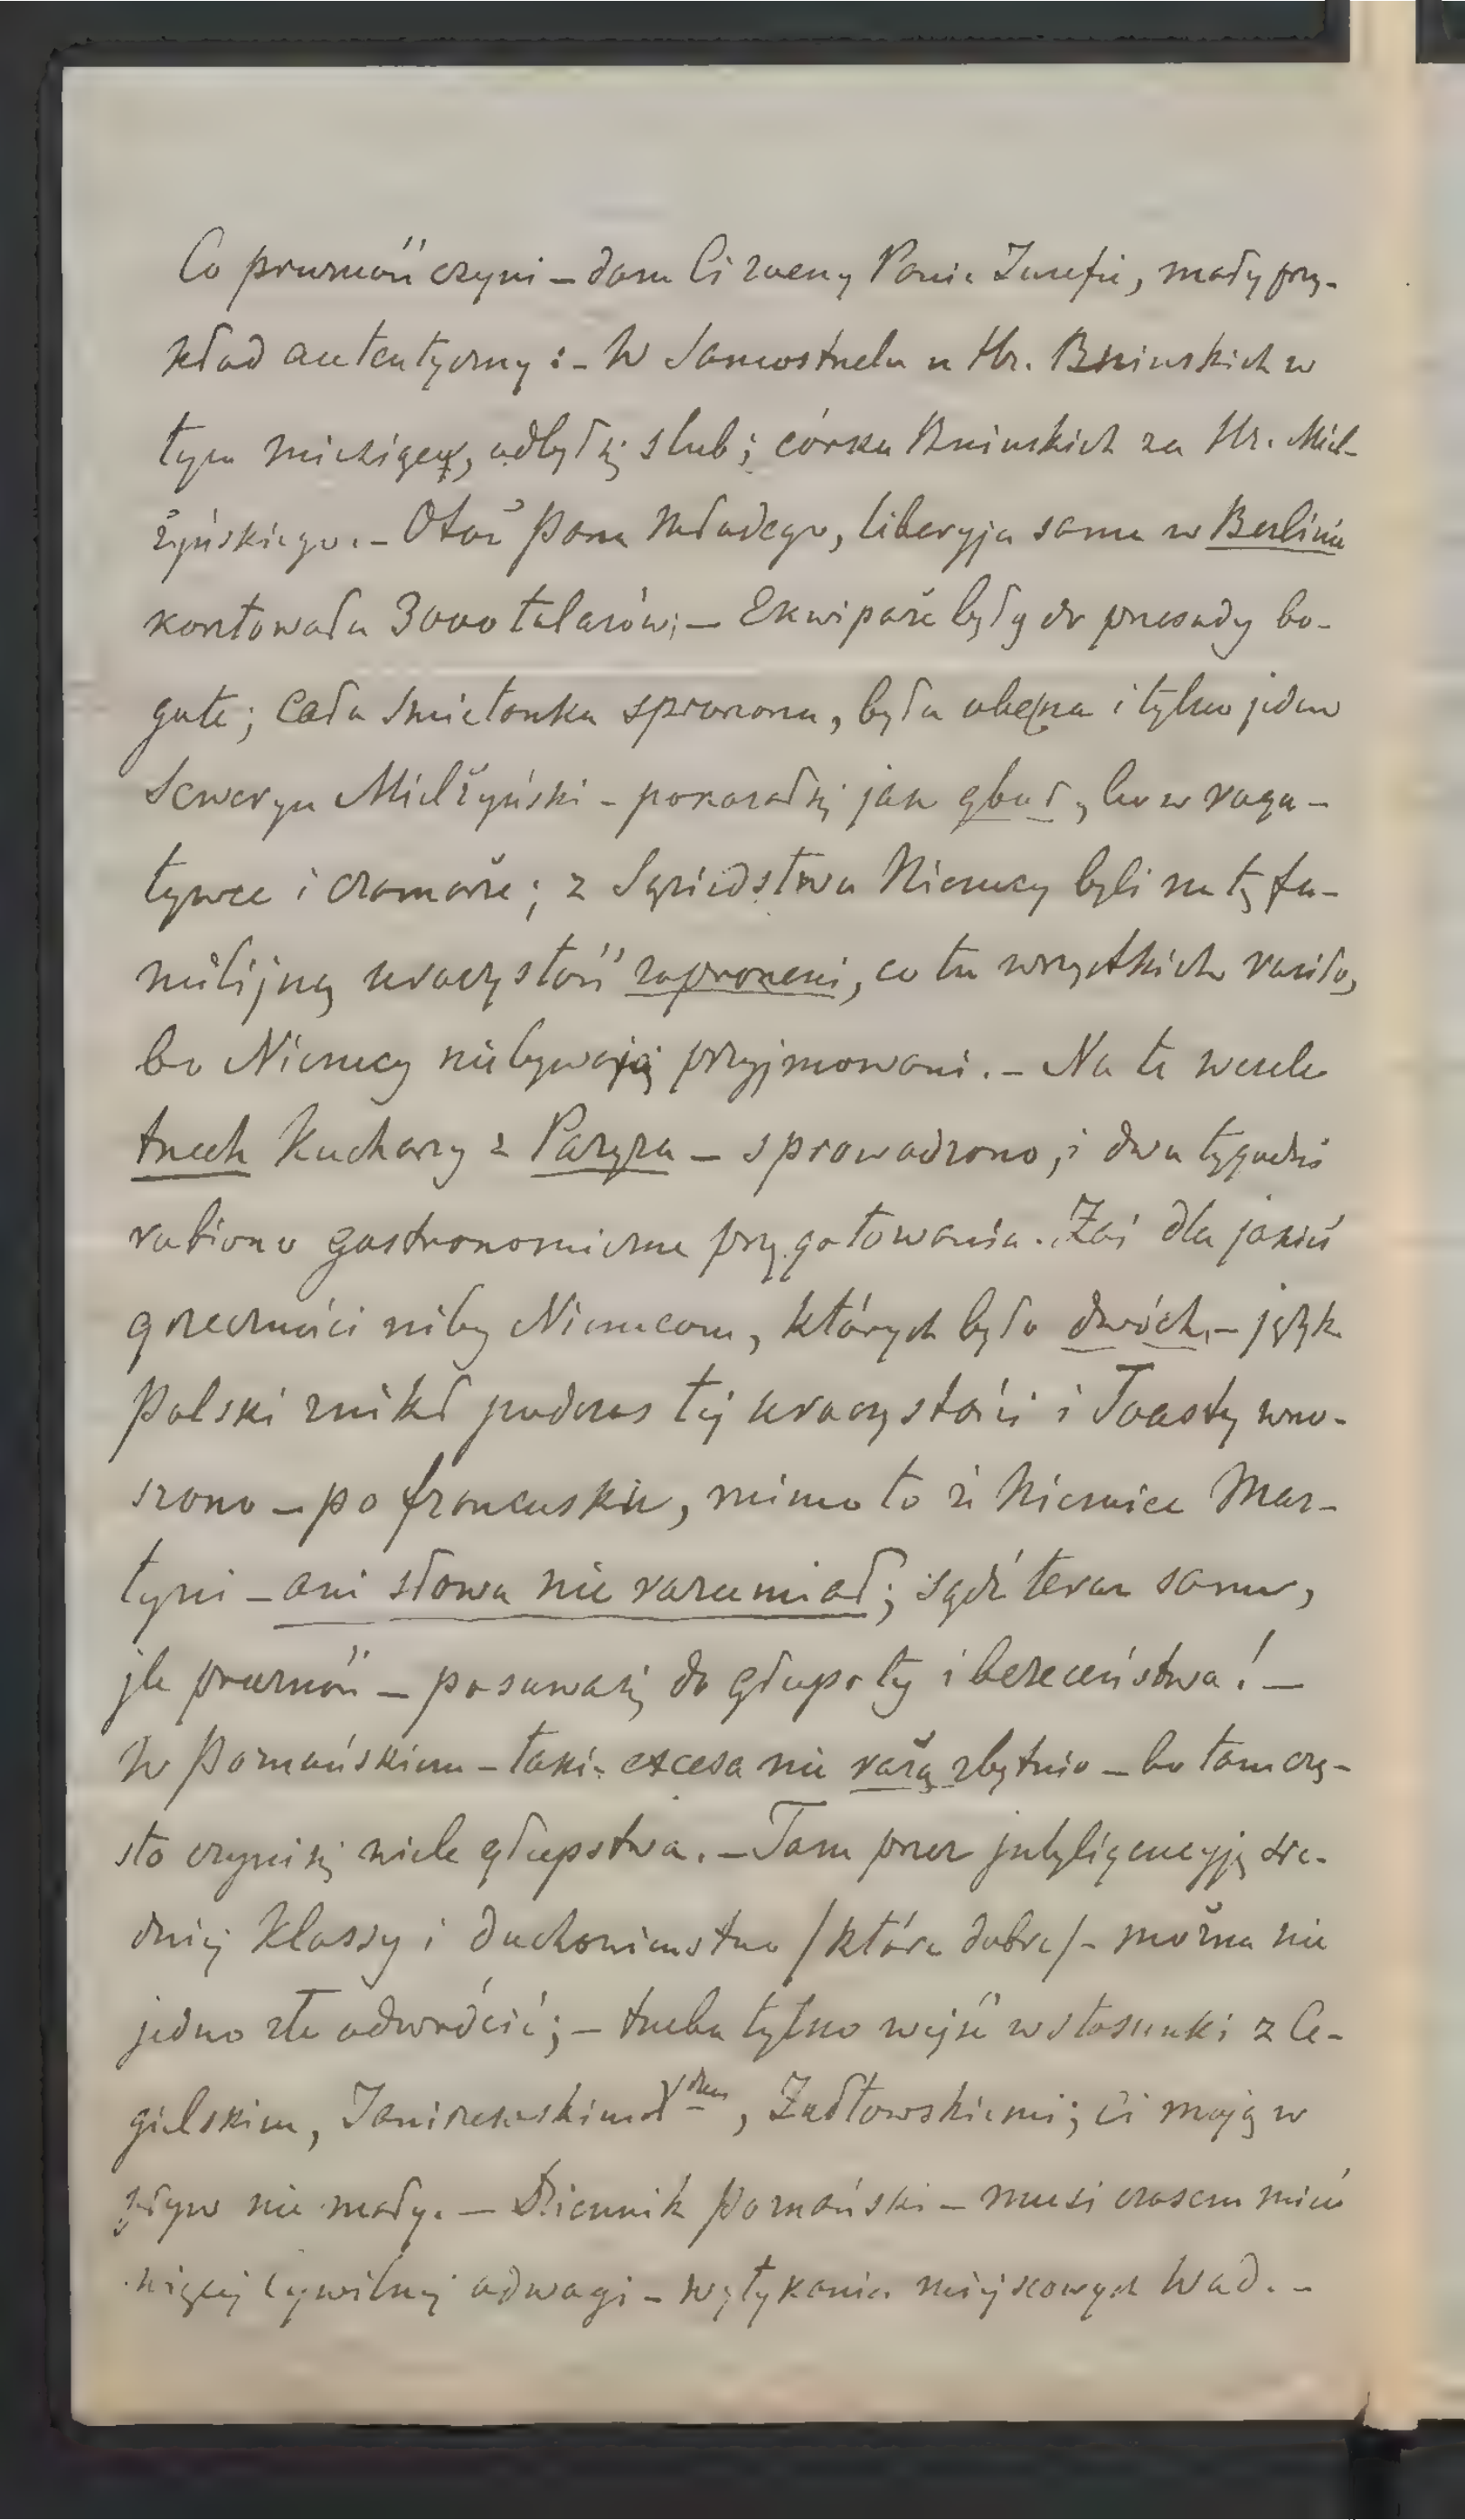 Co prużność czyni – dam Ci zacny Panie Józefie, mały przy-
kład autentyczny: – W Samostrzelu u Hr. Bnińskich w
tym miesiącu, odbył się slub; córka Bnińskich za Hr. Miel-
żyńskiego. – Otoż pana Młodego, liberyja sama w Berlinie
kosztowała 3000 talarów; – Ekwipaże były do przesady bo-
gate; cała smietanka sproszona, była obecna i tylko jeden
Seweryn Mielżyński – pokazał się jak gbur, bo w roga-
tywce i czamarze; z Sąsiedstwa Niemcy byli na tę fa-
milijną uroczystość zaproszeni, co tu wszystkich raziło,
bo Niemcy nie bywają przyjmowani. – Na te wesele
trzech Kucharzy z Paryża – sprowadzono, i dwa tygodnie
robiono gastronomiczne przygotowania. Zaś dla jakiejś
grzeczności niby Niemcom, których było dwóch, – język
Polski znikł podczas tej uroczystości i Toasty wno-
szono – po francusku, mimo to że Niemiec Mar-
tyni – ani słowa nie rozumiał; sądź teraz samo,
jle prużność – posuwa się do głupoty i bezeceństwa! –
W Poznańskiem – takie excesa nie rażą zbytnio – bo tam czę-
sto czyni się wiele głupstwa. – Tam przez jntyligencyją śre-
dniej klassy i duchowieństwo /które dobre/ – można nie
jedno złe odwrócić; – trzeba tylko wejść w stosunki z Ce-
gielskim, Janiszewskim, Żółtowskiemi; ci mają w
pływ nie mały. – Dziennik Poznański – musi czasem mieć
więcej cywilnej odwagi – wytykania miejscowych wad. –